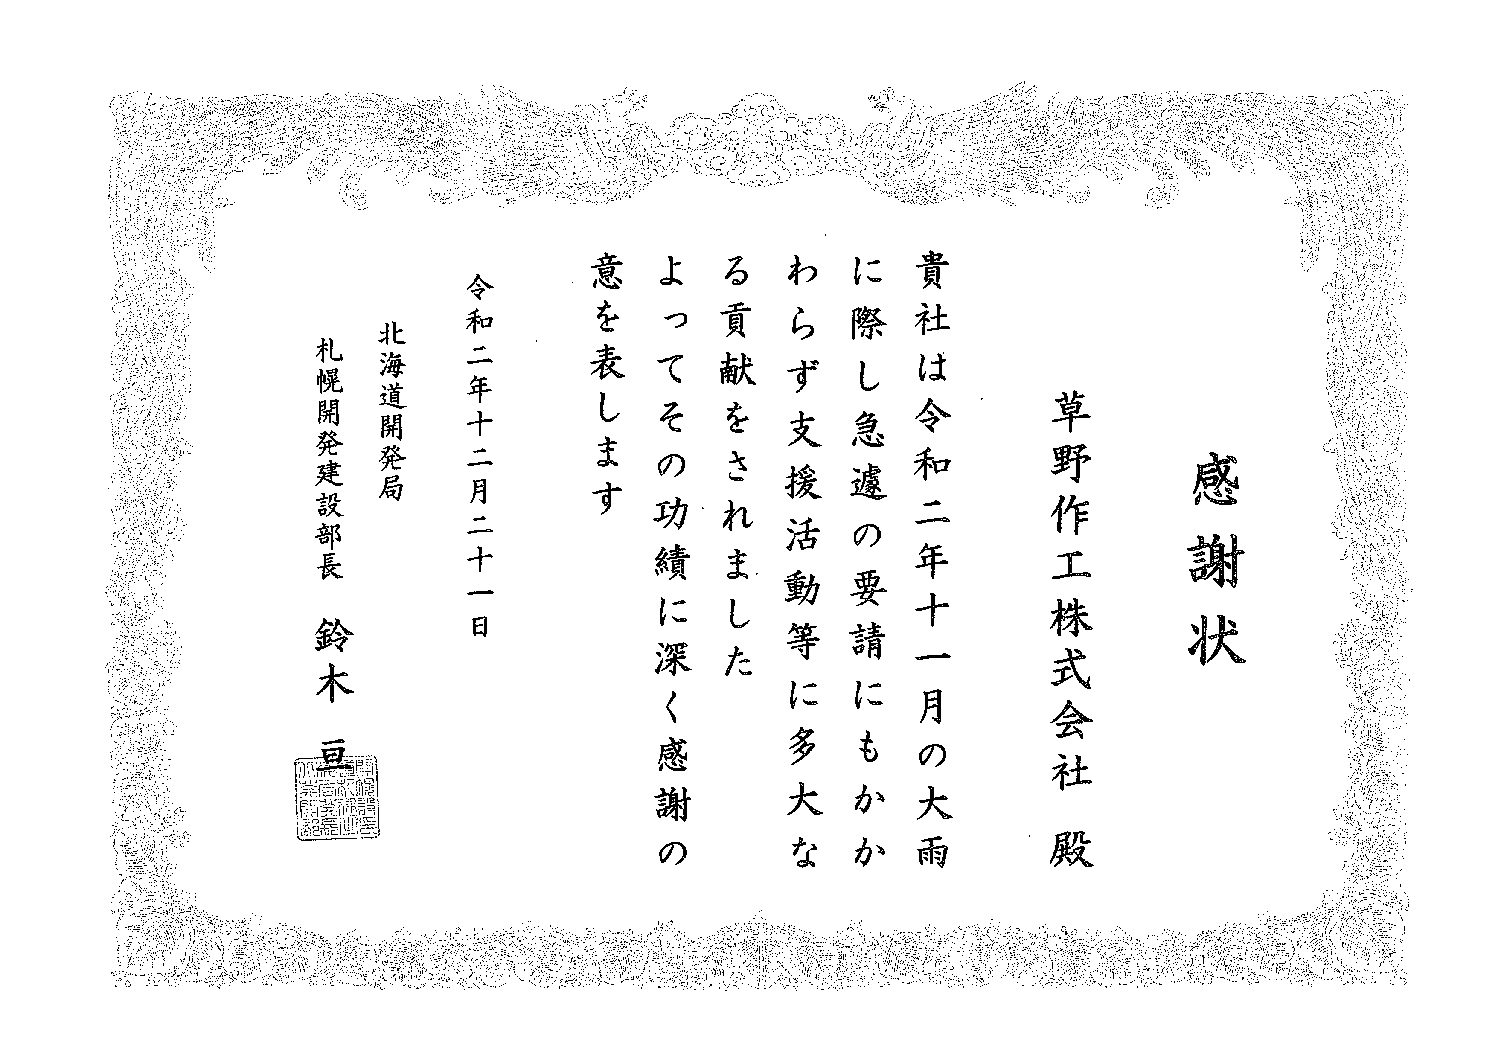 感謝状
草野作工株式会社 殿
貴社は令和二年十一月の大雨
に際し急遽の要請にもかか
わらず支援活動等に多大な
る貢献をされました
よってその功績に深く感謝の
意を表します
令和二年十二月二十一日
北海道開発局
札幌開発建設部長 鈴木 亘